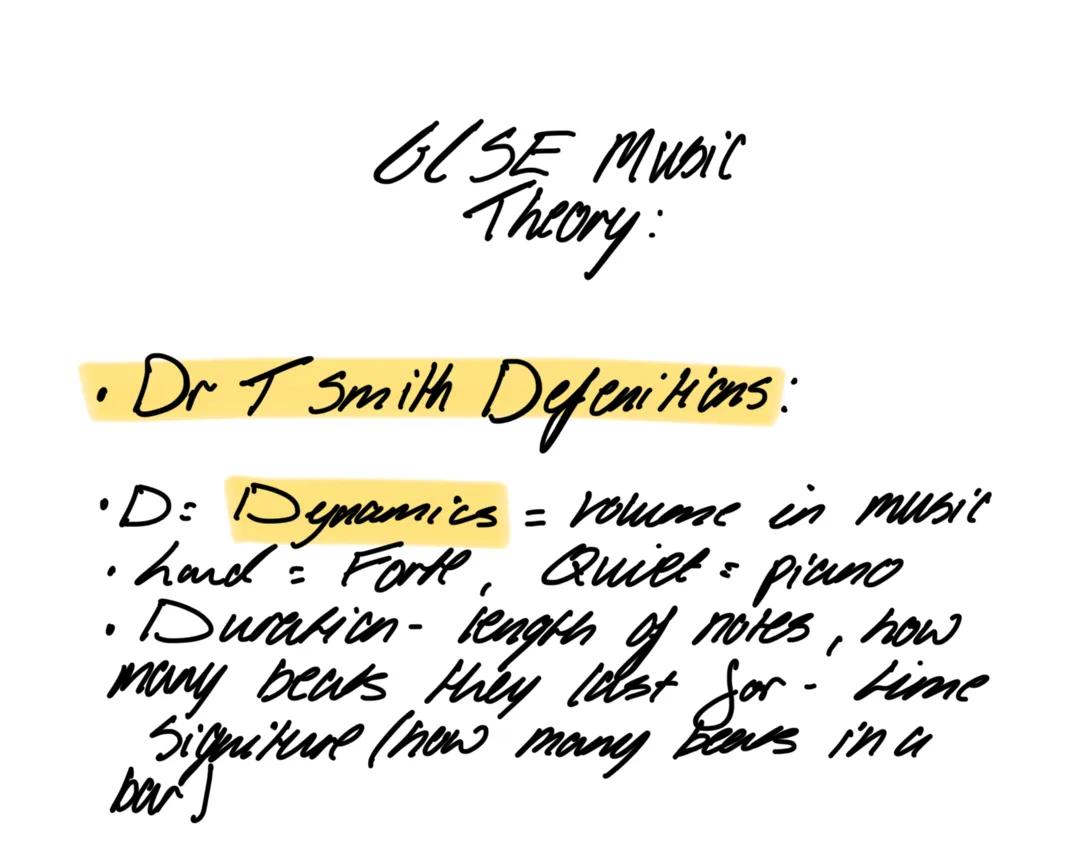 GCSE Music
Theory:
• Dr T Smith Defenitions:
• D= Dynamics = volume in music
• Loud = Forte, Quiet = piano
• Duration - length of notes, how
many beats they last for - time
signiture (how many beats in a
bar)